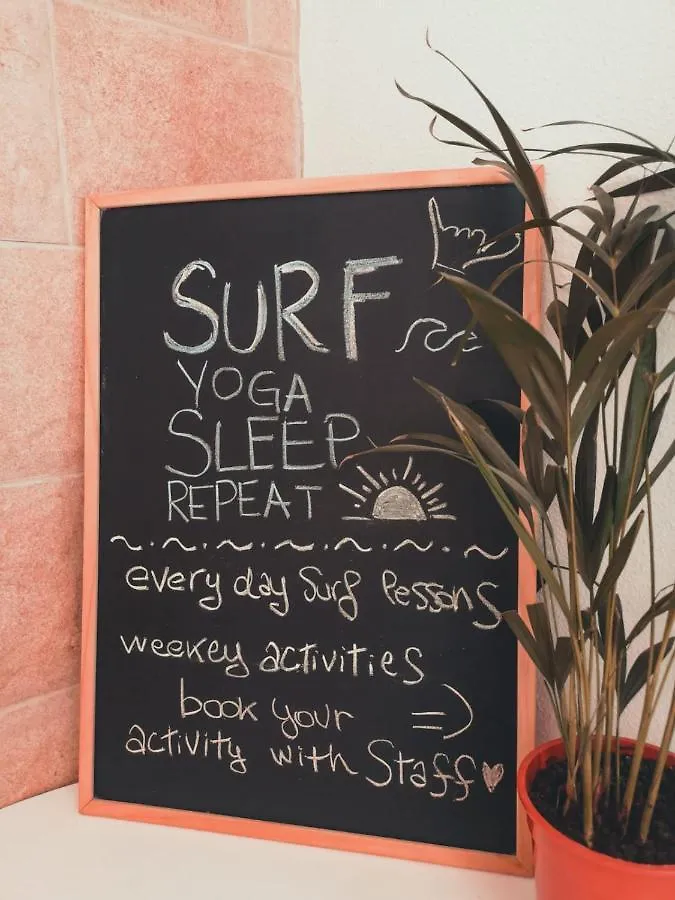 SURF
YOGA
SLEEP
REPEAT
~.~.~.~.~.~.~
every day Surf lessons
weekey activities
book your =)
activity with Staff ♥